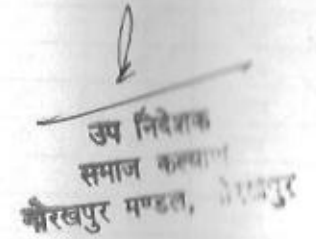 उप निदेशक
समाज कल्याण
गोरखपुर मण्डल, गोरखपुर